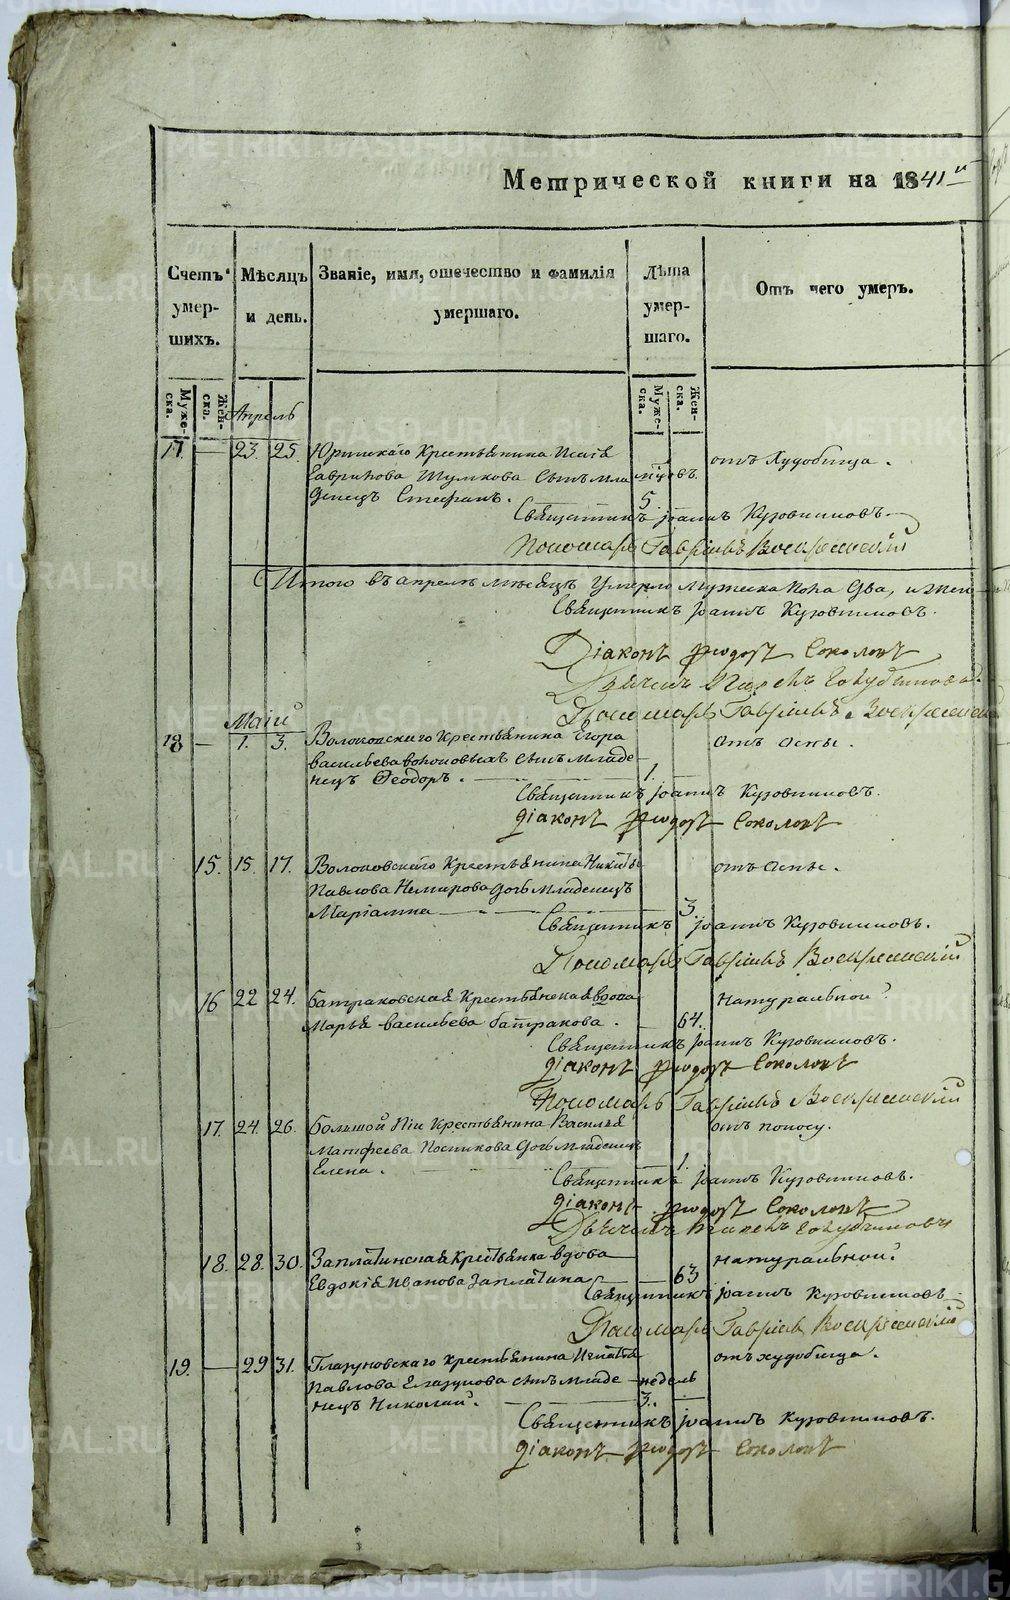 Метрической книги на 1841й
Счетъ умер-шихъ.
Мѣсяцъ и день.
Званіе, имя, отечество и фамилія умершаго.
Лѣта умер-шаго.
Отъ чего умеръ.
Муже-ска.
Жен-ска.
Муже-ска.
Жен-ска.
Апрель
17. — 23. 25. Крестьянина Исаія
Гаврилова Шумкова сынъ мла мѣсяцовъ. отъ Худобища.
денецъ Стефанъ. 5
Священникъ Іоаннъ Кузовниковъ
Пономарь Гавріилъ Воскресенскій
Итого въ апрелѣ мѣсяцѣ умерло мужеска пола два, и жен
Священникъ Іоаннъ Кузовниковъ.
Діаконъ Ѳеодоръ Соколовъ
Дьячекъ
Пономарь Гавріилъ Воскресенскій
Маій
18 — 1. 3. Волоковскаго Крестьянина Егора отъ оспы.
Васильева сынъ младе
нецъ Ѳеодоръ. 1.
Священникъ Іоаннъ Кузовниковъ.
Діаконъ Ѳеодоръ Соколовъ
15. 15. 17. Волоковскаго Крестьянина Никиты отъ оспы.
Павлова Немирова дочь младенецъ
Маріамна 3.
Священникъ Іоаннъ Кузовниковъ.
Пономарь Гавріилъ Воскресенскій
16 22 24. Батраковская Крестьянская вдова натуральной
Марья Васильева Батракова. 64.
Священникъ Іоаннъ Кузовниковъ.
Діаконъ Ѳеодоръ Соколовъ
Пономарь Гавріилъ Воскресенскій
17. 24. 26. Большой Крестьянина Василья отъ поносу.
Матфеева Посникова дочь младенецъ
Елена. 1.
Священникъ Іоаннъ Кузовниковъ.
Діаконъ Ѳеодоръ Соколовъ
Дьячекъ
18. 28. 30. Заплатинская Крестьянка вдова натуральной
Евдокія Иванова Заплатина 63
Священникъ Іоаннъ Кузовниковъ
Пономарь Гавріилъ Воскресенскій
19. — 29 31. Глазуновскаго крестьянина Игнатья отъ худобища.
Павлова Глазунова сынъ младе недель
нецъ Николай. 3.
Священникъ Іоаннъ Кузовниковъ.
Діаконъ Ѳеодоръ Соколовъ
METRIKI.GASU-URAL.RU